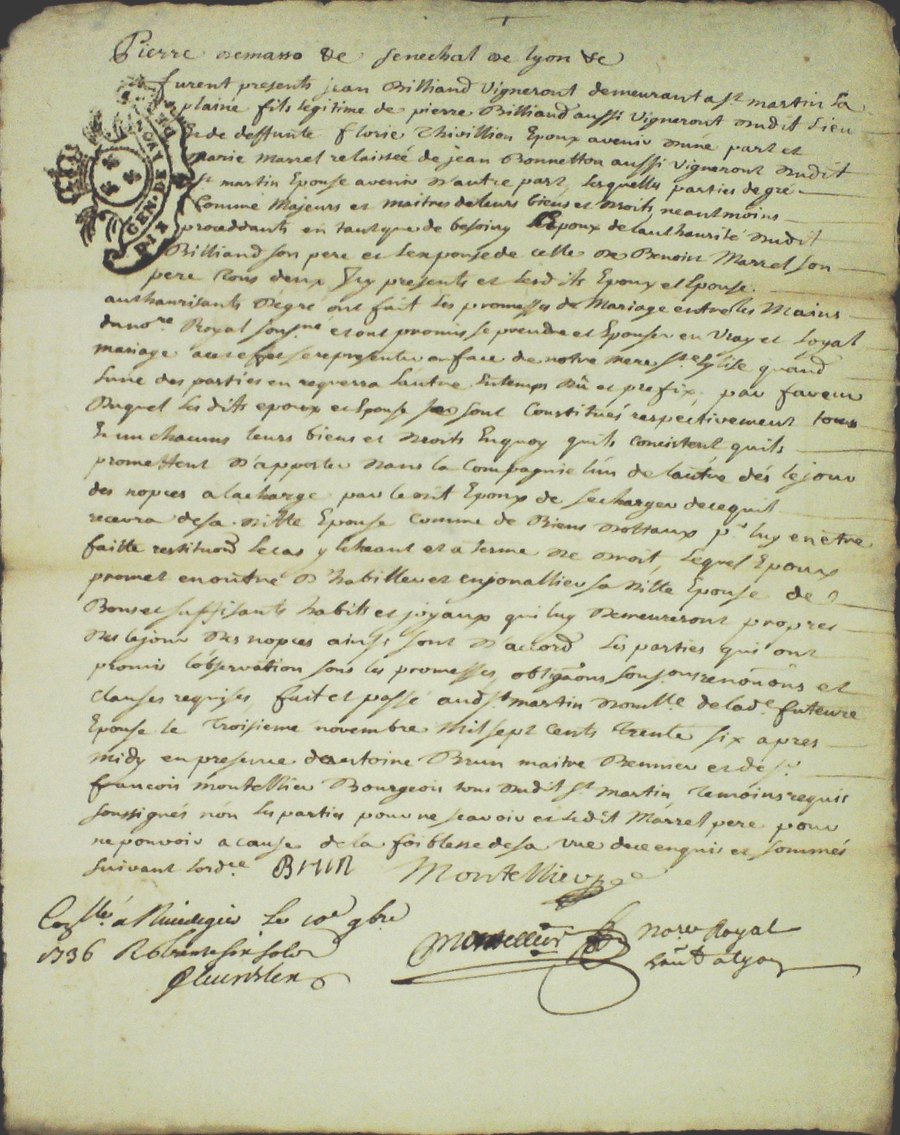 Pierre Demasso &c senechal de lyon &c
furent presents jean Billiand Vigneront demeurant a st martin La
plaine fils legitime de pierre Billiand aussi Vigneront dudit Lieu
Et de deffunte florie Thivillion Epoux avenir d'une part et
marie Marrel relaissée de jean Bonnetton aussi Vigneront dudit
st martin Epouse avenir d'autre part, Lesquelles parties de gré
Comme Majeurs et maitres de leurs biens et droits, neantmoins
proceddants en tant que de besoins L'Epoux de l'authaurité dudit
Billiand son pere et L'exponse de celle de Benoist Marrel son
pere Tous deux Icy presents et Lesdits Epoux et Epouse
authaurisants De gré ont fait Les promesses de Mariage entre les Mains
du nore Royal sousné et ont promis se prendre et Epouser en Vray et Loyal
mariage a ces effet se representer en face de notre mere ste Eglise quand
L'une des parties en requerra L'autre Entemps Dû et prefix, par faveur
Duquel Lesdits epoux et Epouse se sont Constitués respectivement tous
Et un chacuns leurs biens et droits Enquoy quils consistent, quils
promettent D'apporter dans la Compagnie L'un de L'autre dés le jour
des nopces a la charge par ledit Epoux de se charger de ce quil
recevra de sa ditte Epouse Comme de Biens dottaux pr luy en être
faitte restituon Le cas y Echeant et a terme de droit, Lequel Epoux
promet en outre D'habiller et enjouallier sa ditte Epouse de
Bons et suffisants habits et joyaux qui luy Demeureront propres
Des le jour des nopces ainsi sont D'accord Les parties qui ont
promis L'observation sous les promesses, obligaons sousons renonons et
clauses requises, fait et passé audt st martin domlle de lade future
Epouse Le Troisieme novembre Mil sept Cents Trente six apres
midy en presence d'antoine Brun maitre Bennier et de sr
françois montellier Bourgeois tous dudit st martin, Temoins requis
soussignés nón Les parties pour ne scavoir et Ledit Marrel pere pour
ne pouvoir a cause de la foiblesse de sa Vue de ce enquis et sommés
suivant Lordce BRUN Montellier
Conllé a Rivedegier Le 10e 9bre
1736 Ro
Montellier Nore Royal
GEN. DE LYON